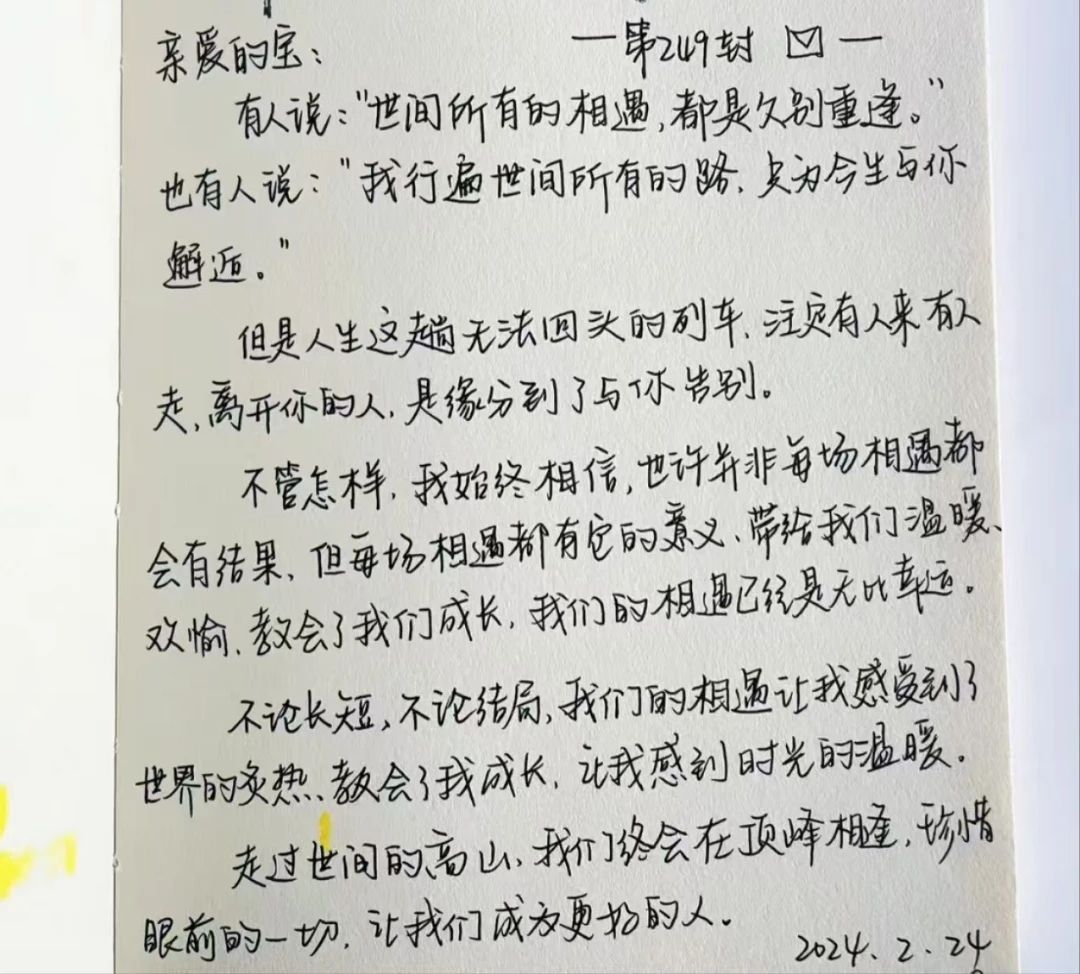 亲爱的宝：
—第249封 —
有人说："世间所有的相遇，都是久别重逢。"
也有人说："我行遍世间所有的路，只为今生与你
邂逅。"
但是人生这趟无法回头的列车，注定有人来有人
走，离开你的人，是缘分到了与你告别。
不管怎样，我始终相信，也许并非每场相遇都
会有结果，但每场相遇都有它的意义，带给我们温暖、
欢愉，教会了我们成长，我们的相遇已经是无比幸运。
不论长短，不论结局，我们的相遇让我感受到了
世界的炙热，教会了我成长，让我感到时光的温暖。
走过世间的高山，我们终会在顶峰相逢，珍惜
眼前的一切，让我们成为更好的人。
2024.2.24